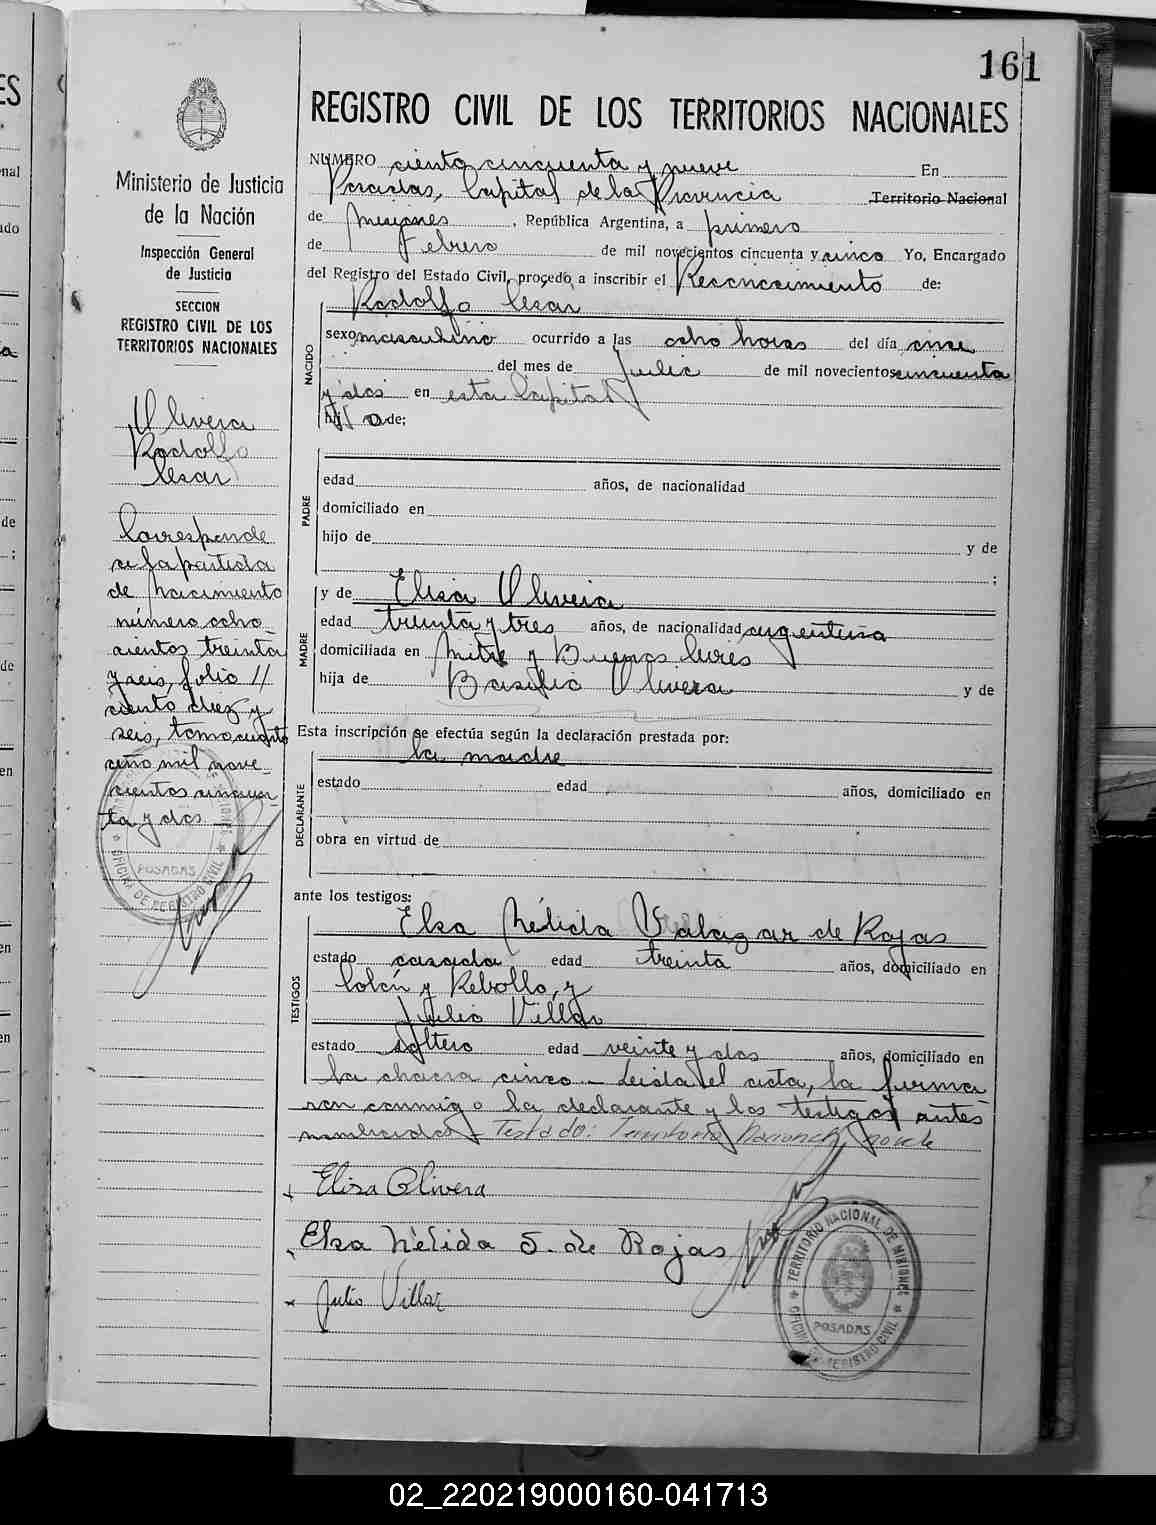 161
REGISTRO CIVIL DE LOS TERRITORIOS NACIONALES
Ministerio de Justicia
de la Nación
Inspección General
de Justicia
SECCION
REGISTRO CIVIL DE LOS
TERRITORIOS NACIONALES
Olivera
Rodolfo
Cesar
Corresponde
a la partida
de nacimiento
número ocho
cientos treinta
y seis, folio //
ciento diez y
seis, tomo cuarto
año mil nove-
cientos cincuen-
ta y dos
POSADAS
OFICINA DE REGISTRO CIVIL
NUMERO ciento cincuenta y nueve En
Posadas, Capital de la Provincia Territorio Nacional
de Misiones, República Argentina, a primero
de Febrero de mil novecientos cincuenta y cinco Yo, Encargado
del Registro del Estado Civil, procedo a inscribir el Reconocimiento de:
Rodolfo Cesar
NACIDO
sexo masculino ocurrido a las ocho horas del día once
del mes de Julio de mil novecientos cincuenta
y dos en esta Capital
hijo de:
PADRE
edad años, de nacionalidad
domiciliado en
hijo de y de
;
MADRE
y de Elisa Olivera
edad treinta y tres años, de nacionalidad argentina
domiciliada en Mitre y Buenos Aires
hija de Basilio Olivera y de
Esta inscripción se efectúa según la declaración prestada por:
la madre
DECLARANTE
estado edad años, domiciliado en
obra en virtud de
ante los testigos:
TESTIGOS
Elsa Nélida de Rojas
estado casada edad treinta años, domiciliado en
Colón y Rebollo, y
Julio Villar
estado soltero edad veinte y dos años, domiciliado en
la chacra cinco.- Leida el acta, la firma
ron conmigo la declarante y los testigos antes
nombrados - Testado: Territorio Nacional, no vale
Elisa Olivera
Elsa Nélida S. de Rojas
Julio Villar
TERRITORIO NACIONAL DE MISIONES
POSADAS
OFICINA DE REGISTRO CIVIL
02_220219000160-041713